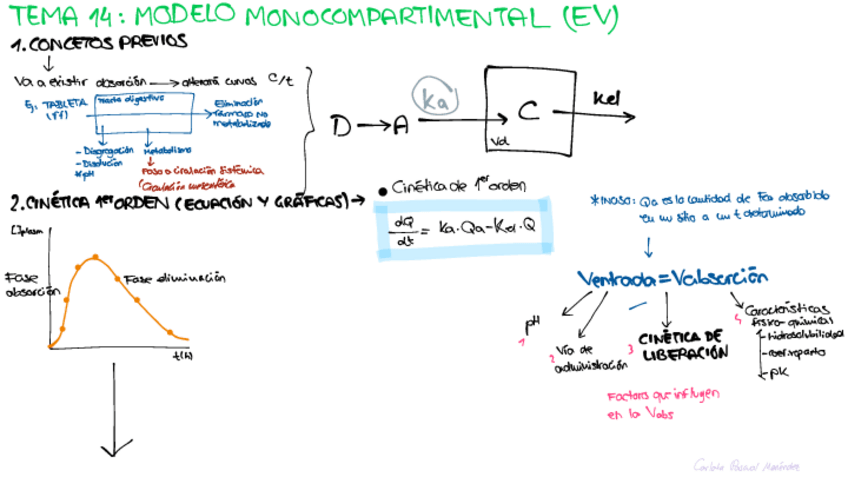 TEMA 14: MODELO MONOCOMPARTIMENTAL (EV)
1. CONCETOS PREVIOS
Va a existir absorción → alterará curvas C/t
Ej. TABLETA
(FF)
Tracto digestivo
Eliminación
fármaco no
metabolizado
- Disgregación
- Disolución
* pH
Metabolismo
Paso a circulación sistémica
D → A
Ka
C
Vd
Kel
2. CINÉTICA 1er ORDEN (ECUACIÓN Y GRÁFICAS) →
• Cinética de 1er orden
dQ/dt = Ka · Qa - Kel · Q
*INOSO: Qa es la cantidad de absorbido
en un sitio a un t determinado
[]plasm
Fase
absorción
Fase eliminación
t(h)
Ventrada = Vabsorción
1 pH
2 Vía de
administración
3 CINÉTICA DE
LIBERACIÓN
4 Características
físico-químicas
- hidrosolubilidad
- coef. reparto
- pK
Factores que influyen
en la Vabs